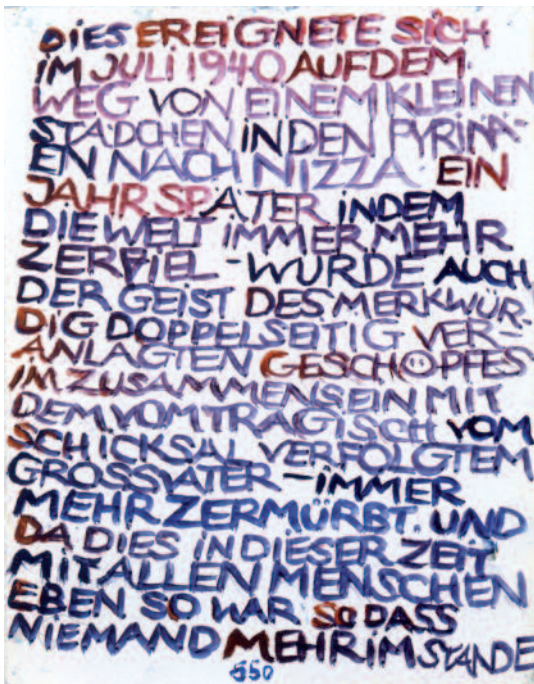 DIES EREIGNETE SICH
IM JULI 1940 AUF DEM
WEG VON EINEM KLEINEN
STÄDCHEN IN DEN PYRINÄ-
EN NACH NIZZA. EIN
JAHR SPÄTER INDEM
DIE WELT IMMER MEHR
ZERFIEL – WURDE AUCH
DER GEIST DES MERKWÜR-
DIG DOPPELSEITIG VER-
ANLAGTEN GESCHÖPFES
IM ZUSAMMENSEIN MIT
DEM VOM TRAGISCH VOM
SCHICKSAL VERFOLGTEM
GROSSVATER – IMMER
MEHR ZERMÜRBT. UND
DA DIES IN DIESER ZEIT
MIT ALLEN MENSCHEN
EBEN SO WAR SO DASS
NIEMAND MEHR IM STANDE
550